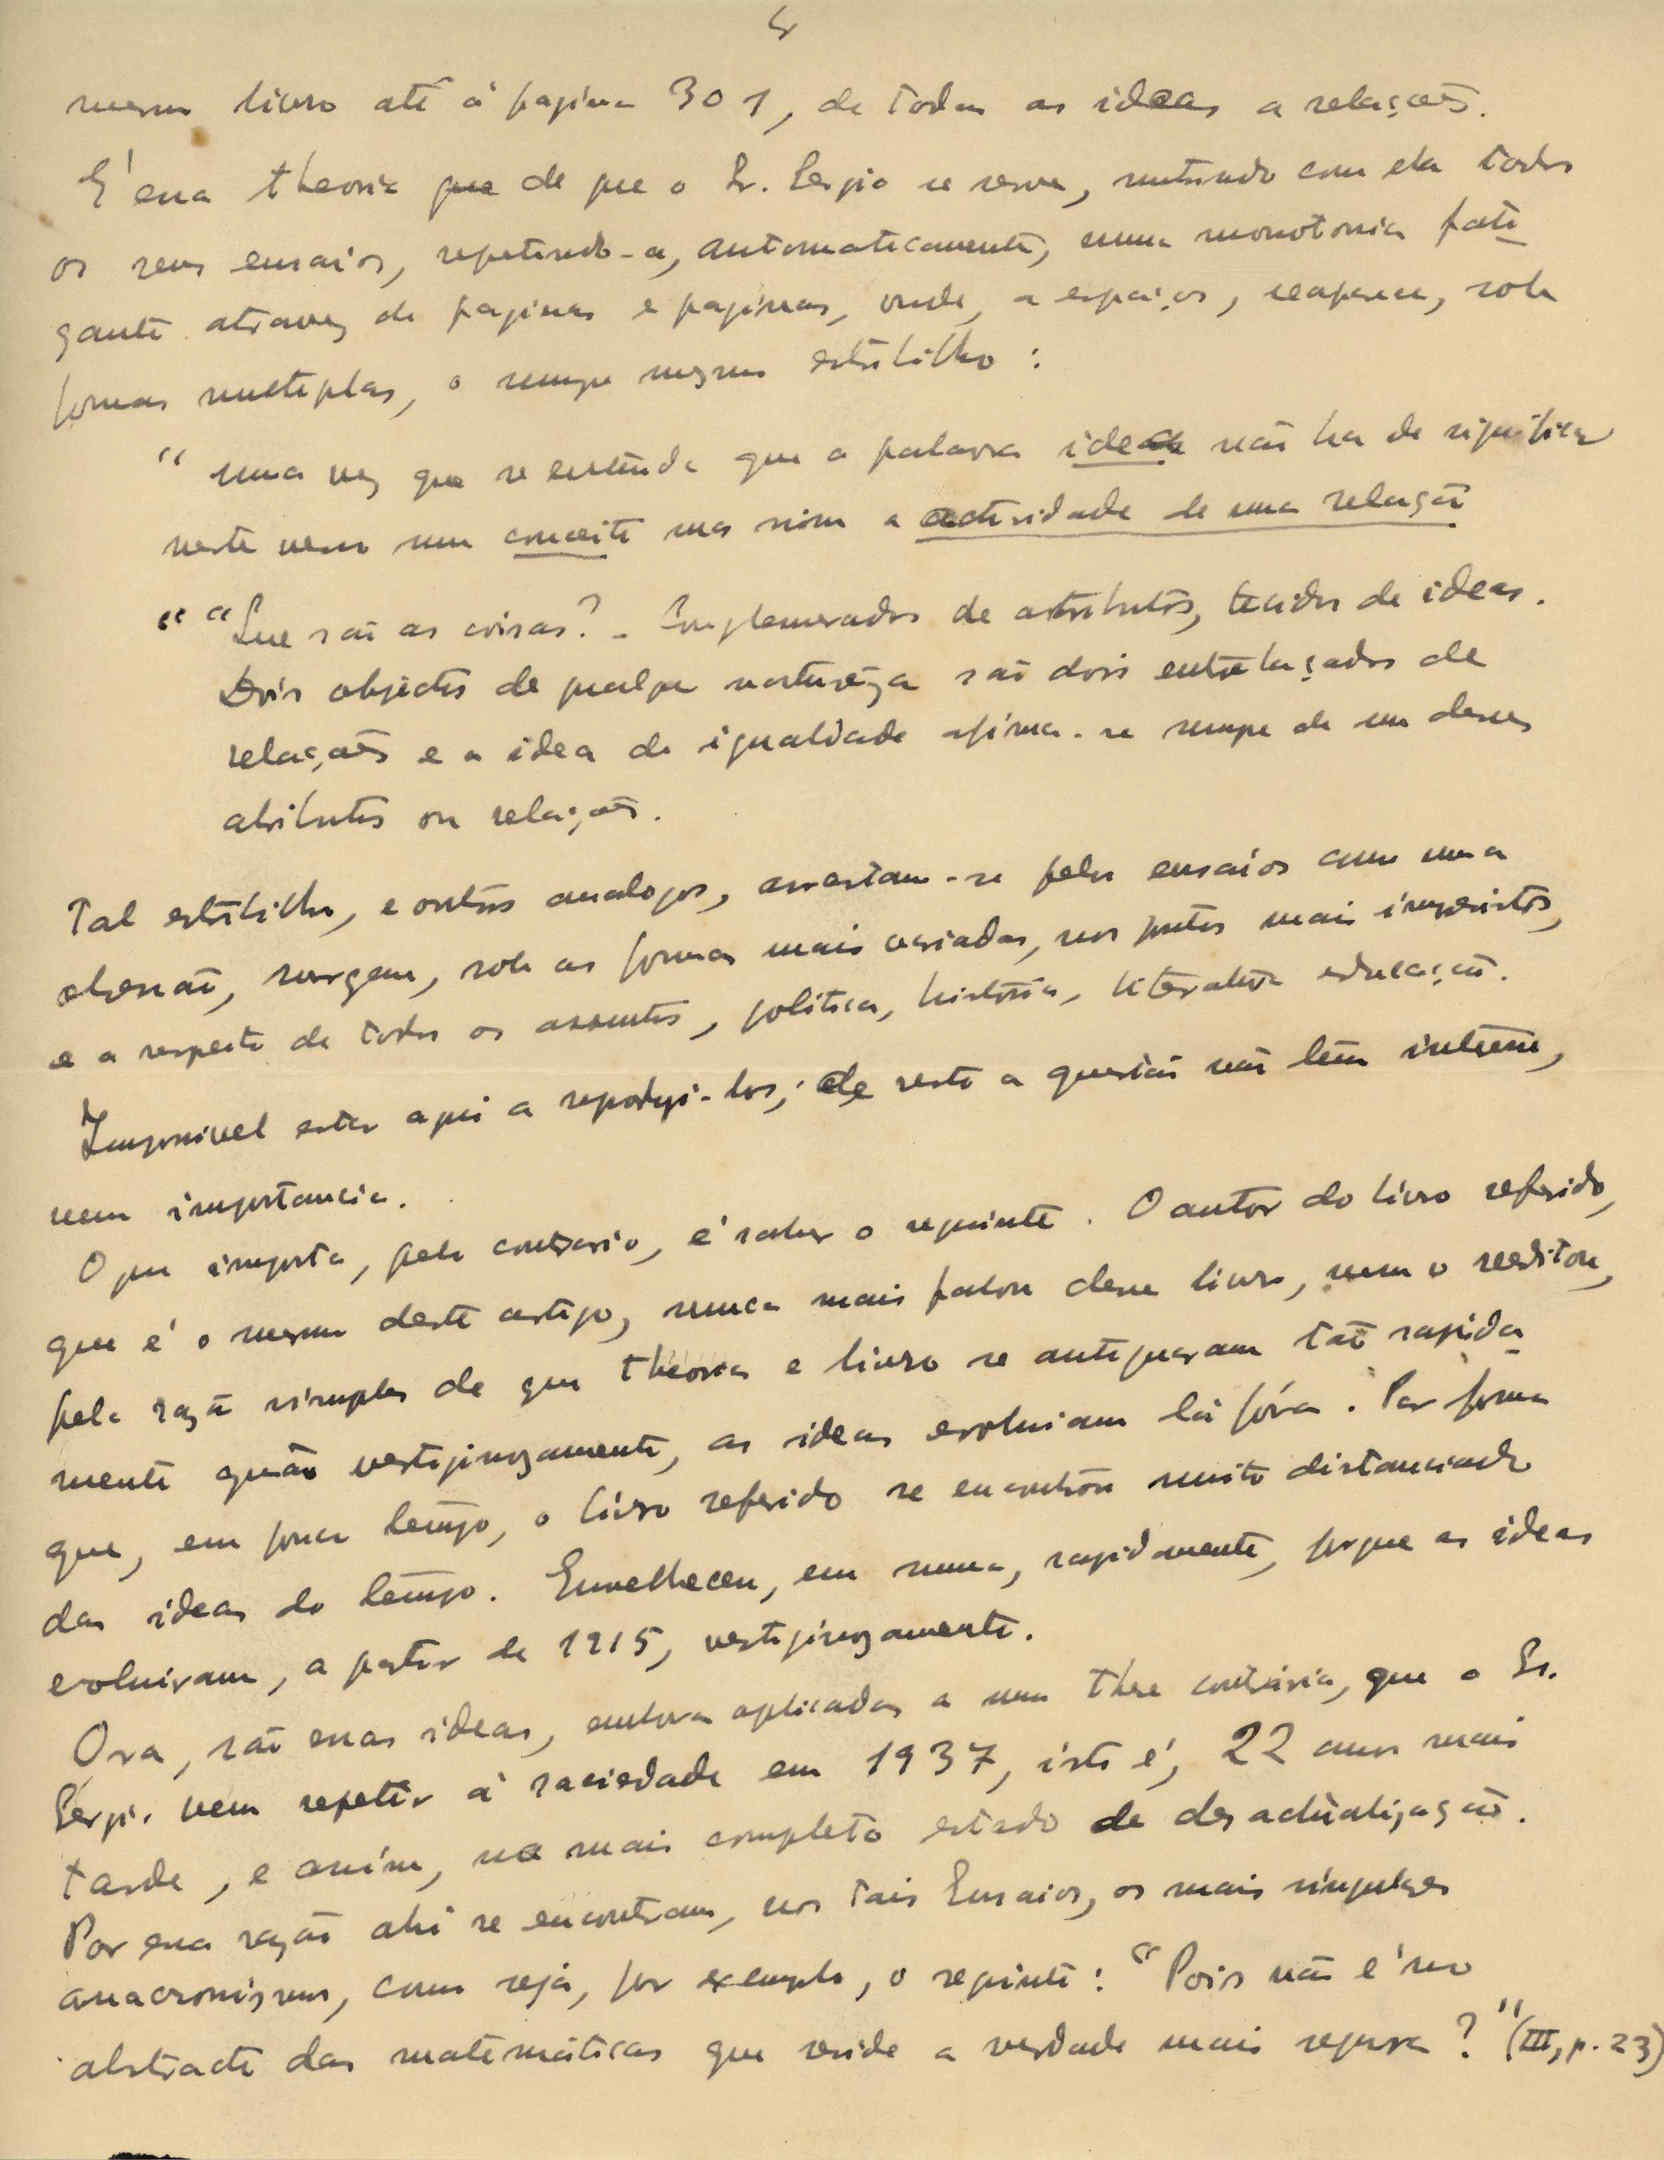 4
mesmo livro até á pagina 301, de todas as ideas a relações.
É essa theoria que de que o Sr. Sergio se serve, nutrindo com ela todos
os seus ensaios, repetindo-a, automaticamente, numa monotonia fati-
gante atravez de paginas e paginas, onde, a espaços, reaparece, sob
formas multiplas, o sempre mesmo estribilho:
" uma vez que se entenda que a palavra idea não ha de significar
neste verso um conceito mas sim a actividade de uma relação
" "Que são as coisas? - Conglomerados de atributos, tecidos de ideas.
Dois objectos de qualquer natureza são dois entrelaçados de
relações e a idea de igualdade afirma-se sempe de um desses
atributos ou relações.
Tal estribilho, e outros analogos, assestam-se pelos ensaios como uma
obsessão, surgem, sob as formas mais variadas, nos pontos mais imprevistos,
e a respeito de todos os assuntos, politica, história, literatura educação.
Impossivel estar aqui a reproduzi-los; de resto a questão não têm interesse,
nem importancia.
O que importa, pelo contrario, é saber o seguinte. O autor do livro referido,
que é o mesmo deste artigo, nunca mais falou desse livro, nem o reeditou,
pela razão simples de que theoria e livro se antiquaram tão rapida-
mente quão vertiginozamente, as ideas evoluiam lá fóra. Por forma
que, em pouco tempo, o livro referido se encontrou muito distanciado
das ideas do tempo. Envelheceu, em suma, rapidamente, porque as ideas
evoluiram, a partir de 1915, vertiginozamente.
Ora, são essas ideas, embora aplicadas a uma these contrária, que o Sr.
Sérgio vem repetir á saciedade em 1937, isto é, 22 anos mais
tarde, e assim, no mais completo estado de desactualização.
Por essa razão ahi se encontram, nos tais Ensaios, os mais singulares
anacronismos, como seja, por exemplo, o seguinte: "Pois não é no
abstracto das matemáticas que reside a verdade mais segura?" (III, p. 23)